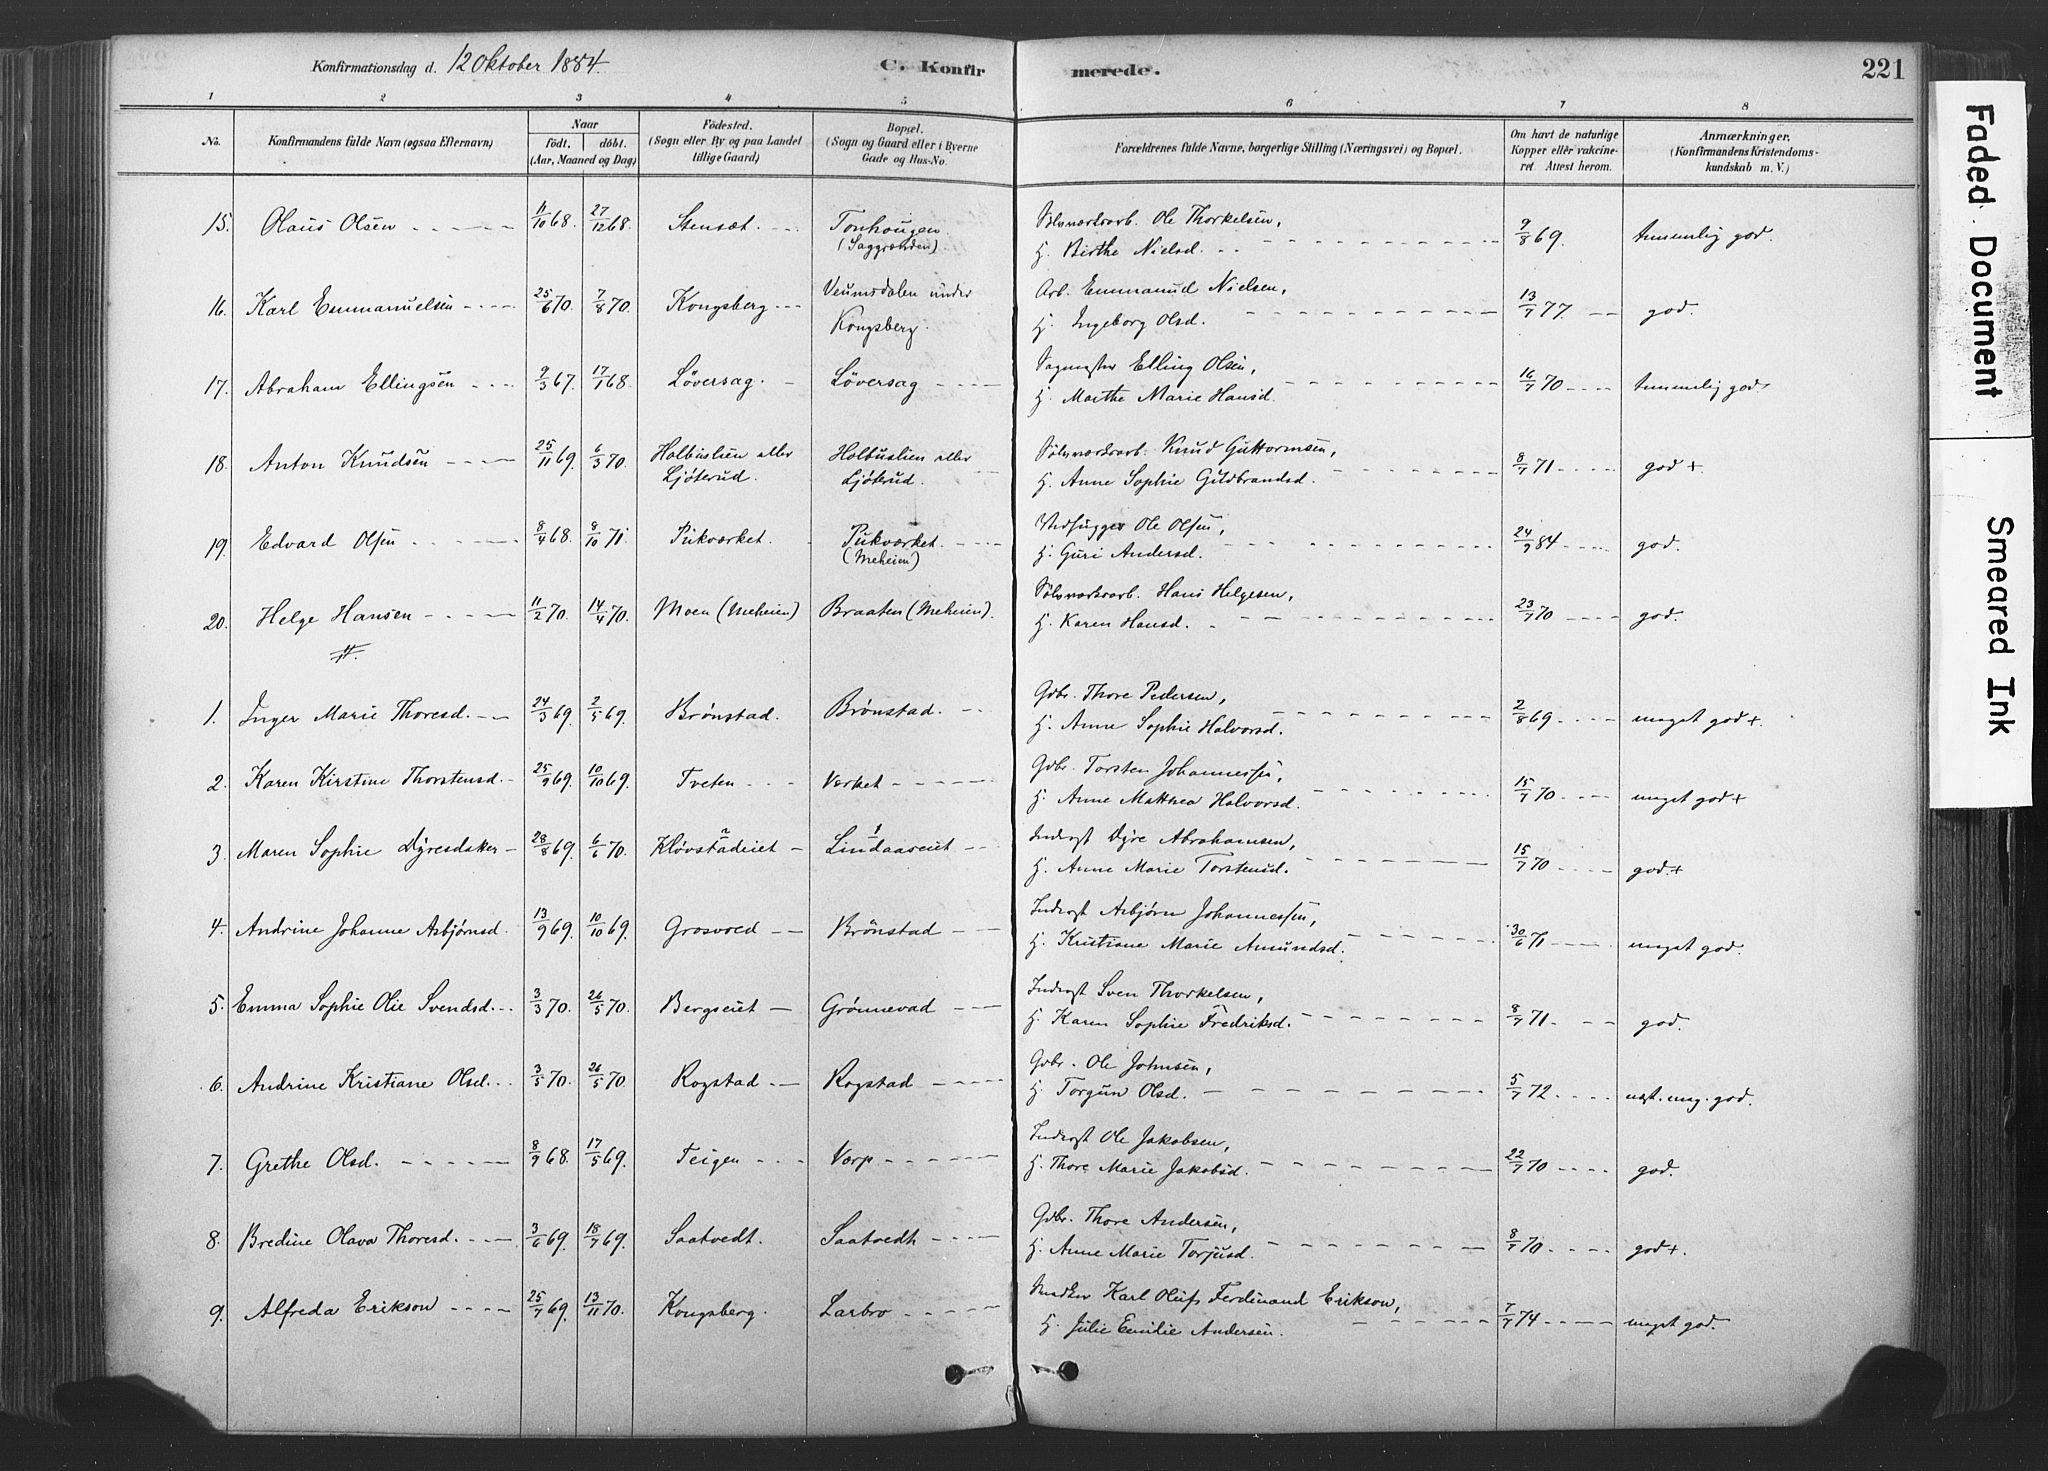 Konfirmationsdag d. 12 Oktober 1884. C. Konfirmerede. 221
1 2 3 4 5 6 7 8
No. Konfirmandens fulde Navn (ogsaa Efternavn) Naar født. døbt. (Aar, Maaned og Dag) Fødested. (Sogn eller By og paa Landet tillige Gaard) Bopæl. (Sogn og Gaard eller i Byerne Gade og Hus-No. Forældrenes fulde Navne, borgerlige Stilling (Næringsvei) og Bopæl. Om havt de naturlige Kopper eller vakcineret. Attest herom. Anmærkninger. (Konfirmandens Kristendomskundskab m. V.)
15. Olaus Olsen 11/10 68. 27/12 68. Stensæt. Tonhougen (Saggrænden). Sølvværksarb. Ole Thorkelsen, H. Birthe Nielsd. 9/8 69. temmelig god.
16. Karl Emmanuelsen 25/6 70. 7/8 70. Kongsberg Veumsdalen under Kongsberg. Arb. Emmanuel Nielsen, H. Ingeborg Olsd. 13/7 77 god.
17. Abraham Ellingsen 2/3 67. 17/1 68. Løversag. Løversag Sagmester Elling Olsen, H. Marthe Marie Hansd. 16/7 70 temmelig god
18. Anton Knudsen 25/11 69. 6/3 70. Holbuslien eller Ljøterud. Holbuslien eller Ljøterud. Sølvværksarb. Knud Guttormsen, H. Anne Sophie Guldbrandsd. 8/7 71 god +
19. Edvard Olsen 8/4 68. 8/10 71. Pukværket. Pukværket. (Meheien) Vedhugger Ole Olsen, H. Guri Andersd. 24/9 84 god.
20. Helge Hansen 11/2 70. 14/4 70. Moen (Meheien) Braaten (Meheien). Sølvværksarb. Hans Helgesen, H. Karen Hansd. 23/7 70 god.
1. Inger Marie Thoresd. 24/3 69. 2/5 69. Brønstad. Brønstad. Gdbr. Thore Pedersen, H. Anne Sophie Halvorsd. 2/8 69 meget god +.
2. Karen Kirstine Thorstensd. 25/9 69. 10/10 69. Tveten Værket Gdbr. Torsten Johannessen, H. Anne Mathea Halvorsd. 15/7 70 meget god +
3. Maren Sophie Dyresdatter 28/8 69. 6/6 70. Kløvstadeiet Lindaaseiet Inderst Dyre Abrahamsen, H. Anne Marie Torstensd. 15/7 70 god. +
4. Andrine Johanne Asbjørnsd. 13/9 69. 10/10 69. Grosvoed Brønstad Inderst Asbjørn Johannessen, H. Kristiane Marie Amundsd. 30/6 71 meget god.
5. Emma Sophie Olie Svendsd. 3/3 70. 26/5 70. Bergseiet Grønnevad Inderst Sven Thorkelsen, H. Karen Sophie Fredriksd. 8/7 71. god.
6. Andrine Kristiane Olsd. 3/5 70. 26/5 70. Rogstad Rogstad Gdbr. Ole Johnsen, H. Torgun Olsd. 5/7 72 næst. meg. god.
7. Grethe Olsd. 8/9 68. 17/5 69. Teigen Vorp Inderst Ole Jakobsen, H. Thore Marie Jakobsd. 22/7 70 god.
8. Bredine Olava Thoresd. 3/6 69. 18/7 69. Saatvedt. Saatvedt Gdbr. Thore Andersen, H. Anne Marie Torjusd. 8/7 70 god +.
9. Alfreda Erikson 25/7 69. 13/11 70. Kongsberg. Larbro Snedker Karl Oluf Ferdinand Erikson, H. Julie Emilie Andersen. 7/7 74 meget god.
Faded Document
Smeared Ink